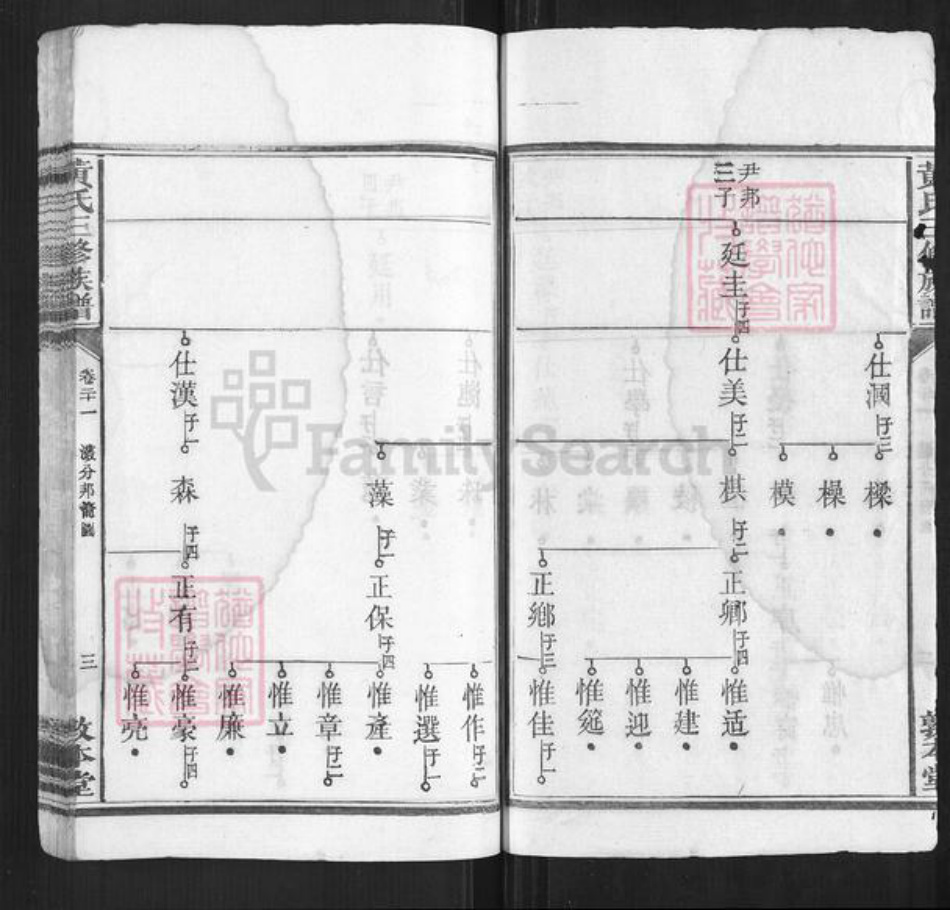 尹邦
三子
廷圭 子四
仕澗 子三
樑
橾
模
仕美 子二
棋 子二
正卿 子四
惟适
惟建
惟迎
惟筵
正鄉 子三
惟佳 子一
惟作 子二
惟選 子一
藻 子一
正保 子四
惟產
惟章 子二
惟立
惟廉
仕漢 子一
森 子四
正有 子二
惟豪 子四
惟亮
黃氏三修族譜
卷二十一
三
敦本堂
FamilySearch